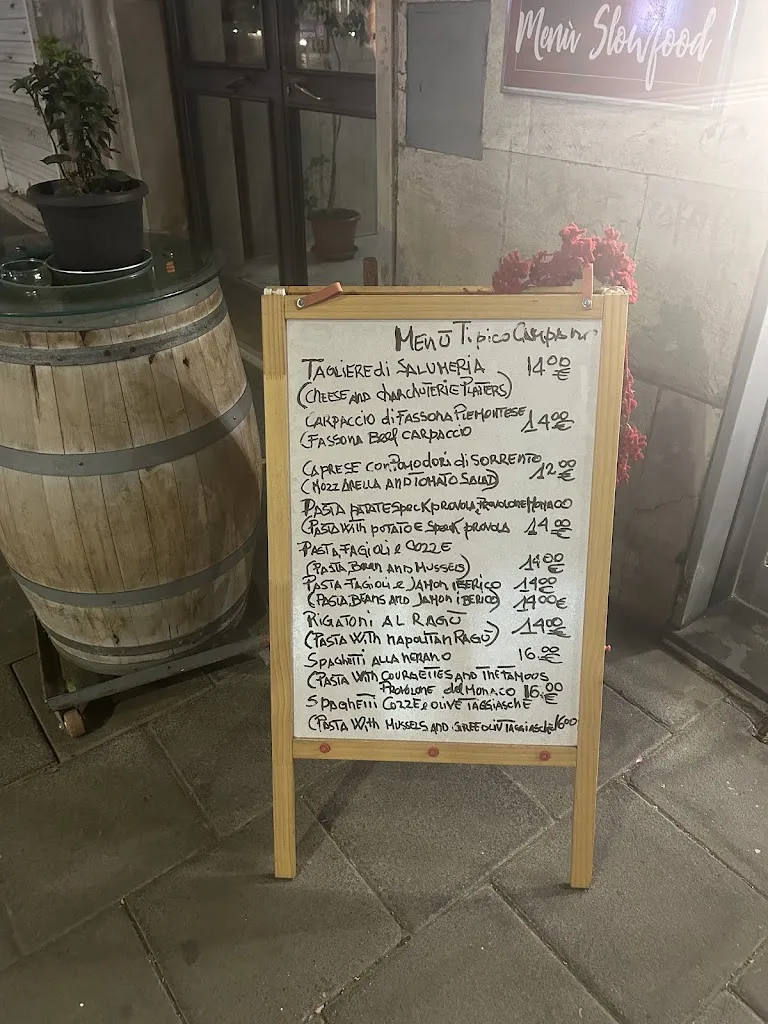 Menù Slowfood
MENÙ Tipico CAMPANO
TAGLIERE di SALUMERIA 14,00 €
(CHEESE AND CHARCHUTERIE PLATERS)
CARPACCIO di FASSONA PIEMONTESE 14,00 €
(FASSONA BEEF CARPACCIO
CAPRESE con POMODORI di SORRENTO 12,00 €
(MOZZARELLA AND TOMATO SALAD)
PASTA PATATE SPECK PROVOLA, PROVOLONE MONACO
(PASTA WITH POTATO E SPECK PROVOLA 14,00 €
PASTA, FAGIOLI e COZZE
(PASTA, BEAN AND MUSSELS) 14,00 €
PASTA FAGIOLI e JAMON IBERICO 14,00
(PASTA BEANS AND JAMON IBERICO) 14,00€
RIGATONI AL RAGÙ 14,00 €
(PASTA WITH NAPOLITAN RAGÙ)
SPAGHETTI ALLA NERANO 16,00 €
(PASTA WITH COURGETTES AND THE FAMOUS
PROVOLONE del MONACO 16,00 €
SPAGHETTI COZZE e OLIVE TAGGIASCHE
(PASTA WITH MUSSELS AND TAGGIASCHE 16,00